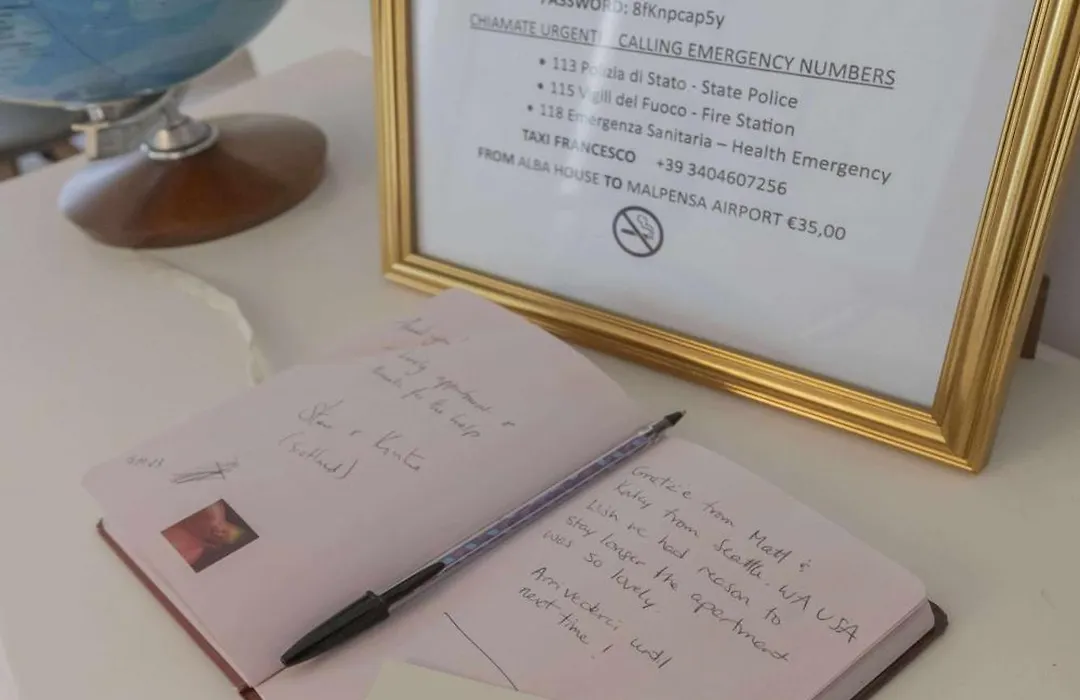 PASSWORD: 8fKnpcap5y
CHIAMATE URGENTI CALLING EMERGENCY NUMBERS
• 113 Polizia di Stato - State Police
• 115 Vigili del Fuoco - Fire Station
• 118 Emergenza Sanitaria – Health Emergency
TAXI FRANCESCO +39 3404607256
FROM ALBA HOUSE TO MALPENSA AIRPORT €35,00
Thank you
lovely apartment
thanks for the help
(Scotland)
Gratzie from Matt &
Kathy from Seattle, WA USA
Wish we had reason to
stay longer the apartment
was so lovely.
Arrivederci until
next time!